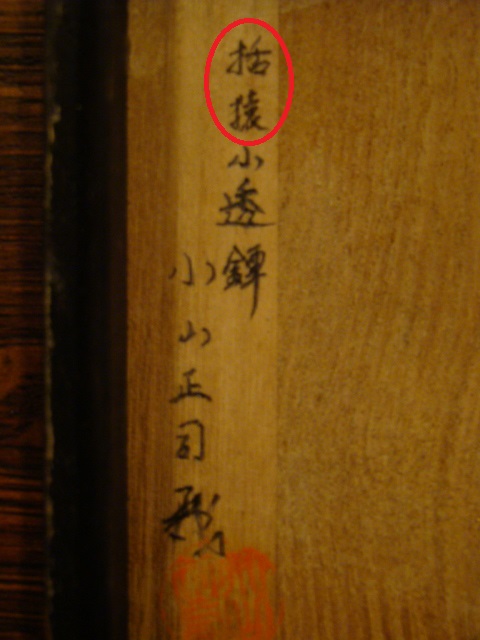 括猿小透鐔
小山正司